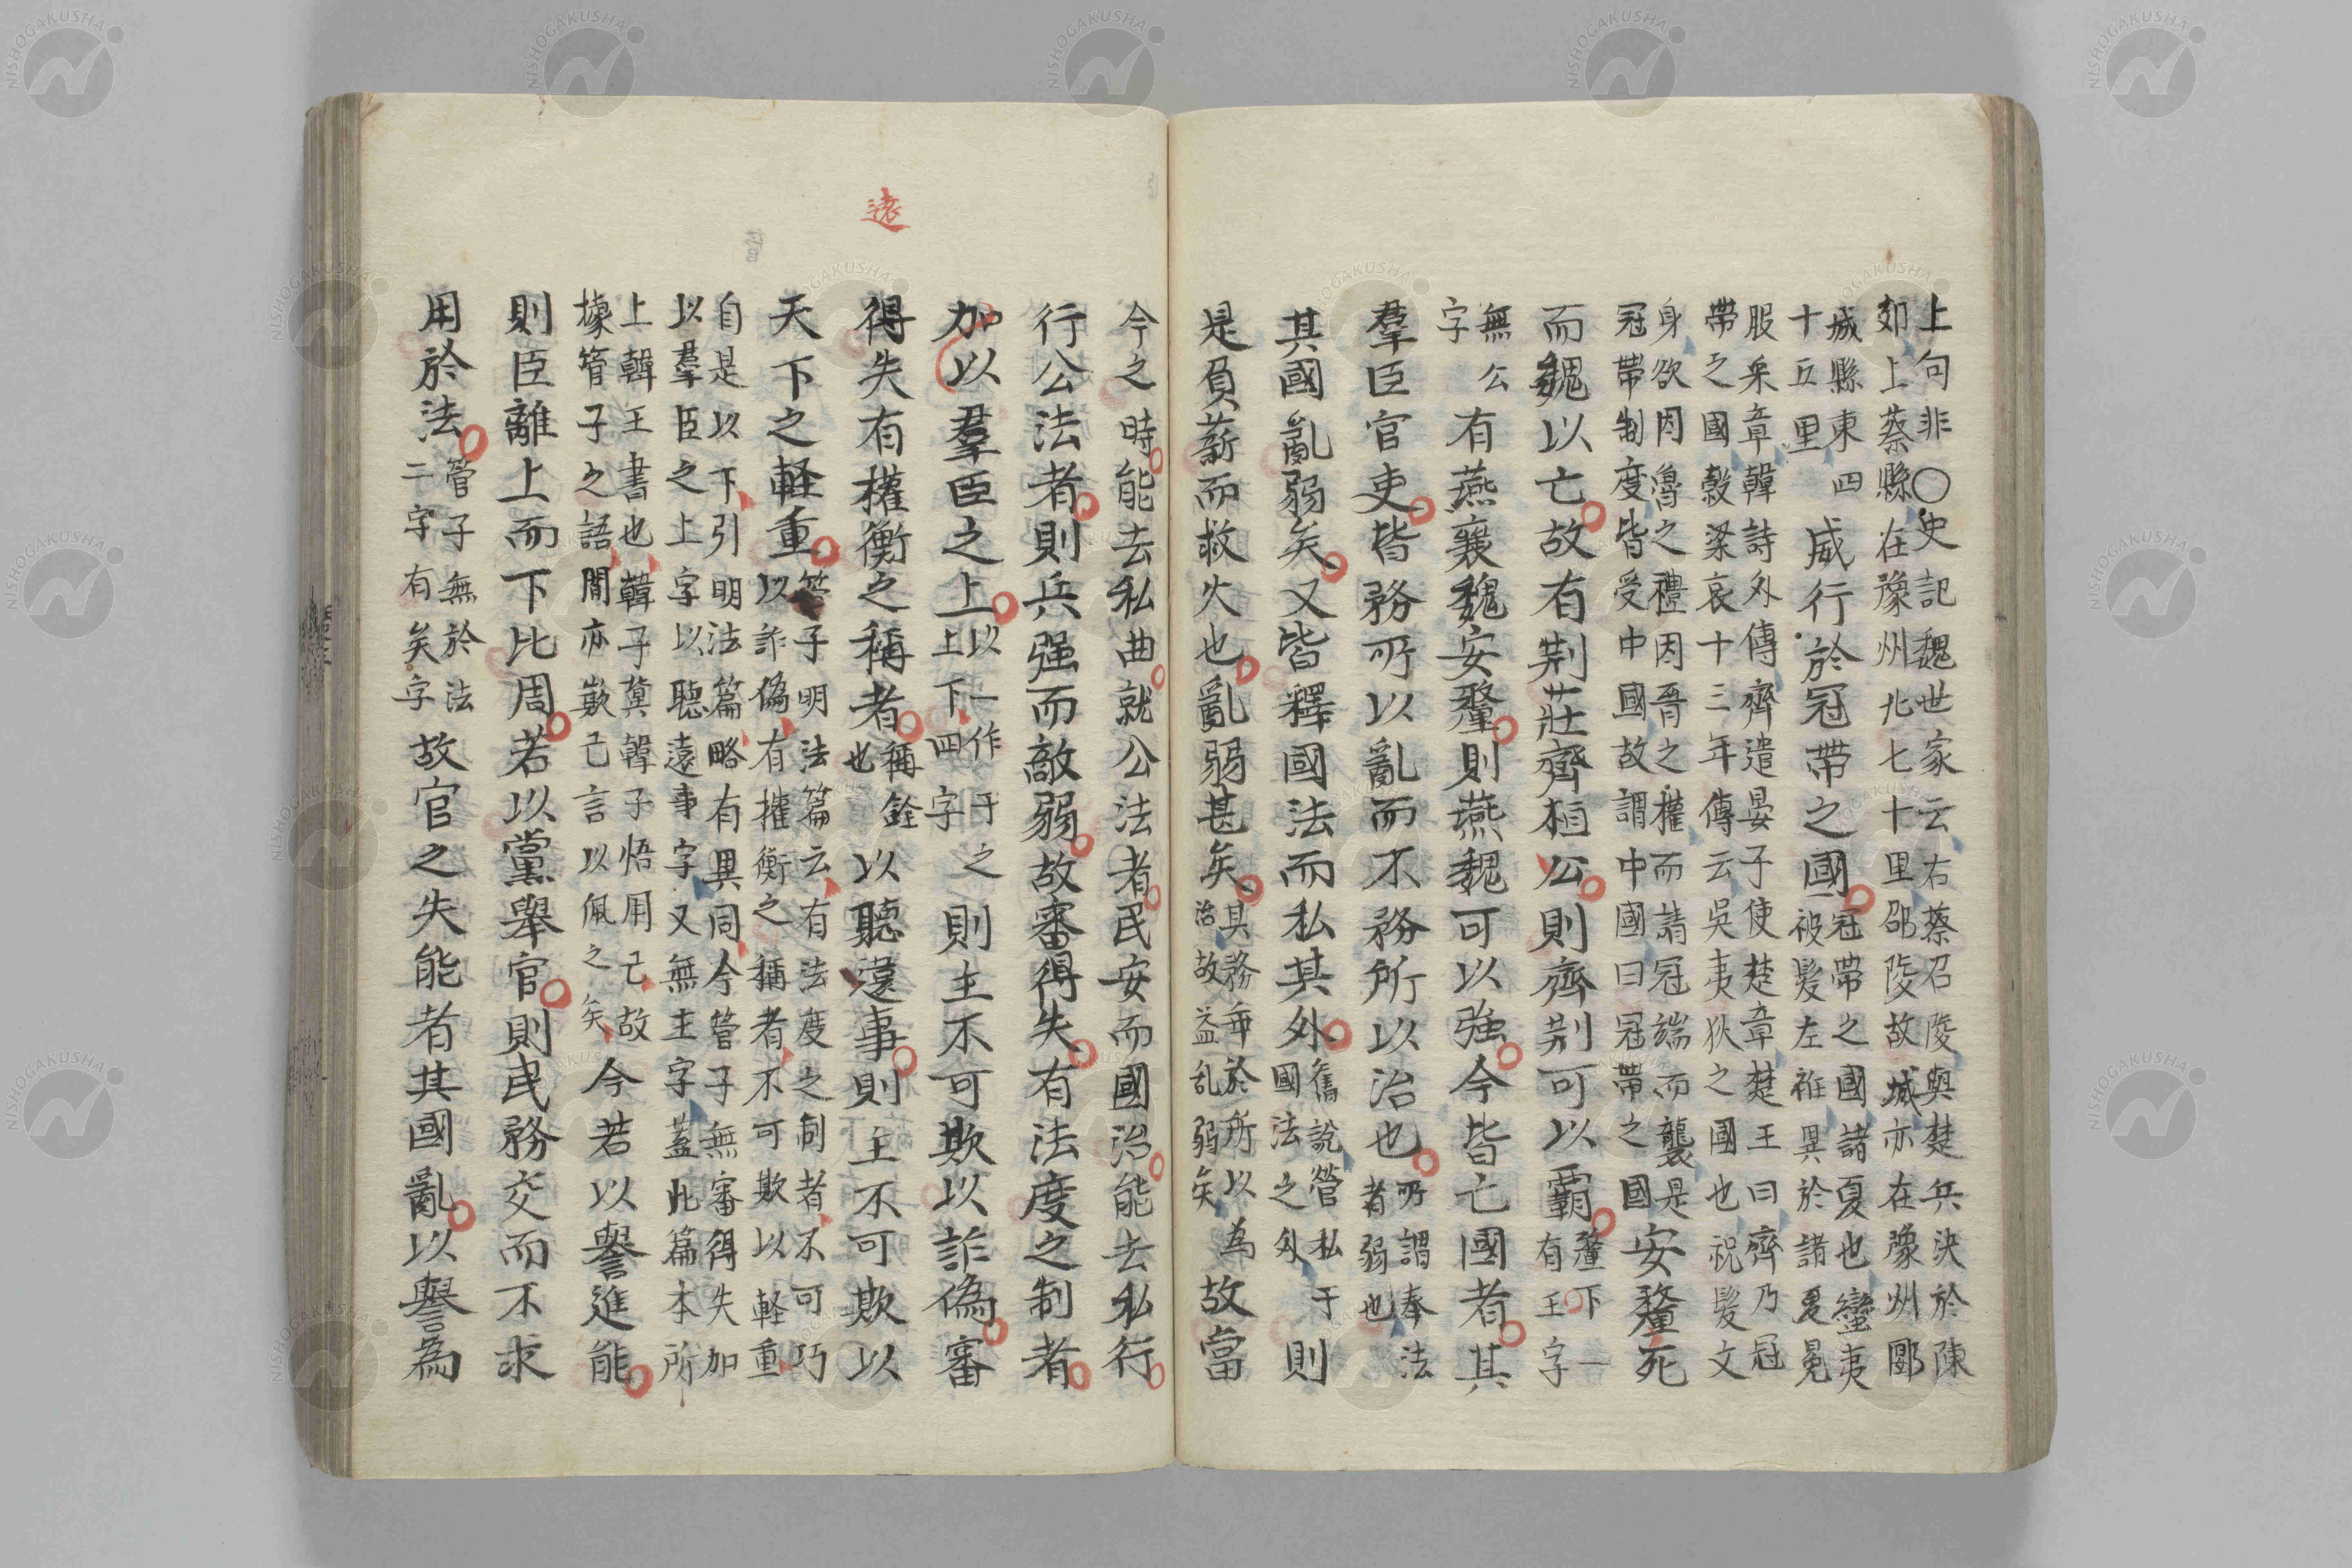 上句非○史記魏世家云右蔡召陵與楚兵決於陳
郊上蔡縣在豫州北七十里邵陵故城亦在豫州郾
城縣東四
十五里
威行於冠帶之國
冠帶之國諸夏也蠻夷
被髮左衽異於諸夏冕
服采章韓詩外傳齊遣晏子使楚章楚王曰齊乃冠
帶之國穀梁哀十三年傳云吳夷狄之國也祝髮文
身欲因魯之禮因晋之權而請冠端而襲是
冠帶制度皆受中國故謂中國曰冠帶之國
安釐死
而魏以亡故有荆莊齊桓公則齊荆可以霸
釐下一
有王字
無公
字
有燕襄魏安釐則燕魏可以強今皆亡國者其
羣臣官吏皆務所以亂而不務所以治也
所謂奉法
者弱也
其國亂弱矣又皆釋國法而私其外
舊說營私于
國法之外
則
是負薪而救火也亂弱甚矣
其務毎於所以為
治故益乱弱矣
故當
今之時能去私曲就公法者民安而國治能去私行
行公法者則兵强而敵弱故審得失有法度之制者
加以羣臣之上
以一作于之
上下四字
則主不可欺以詐偽審
得失有權衡之稱者
稱銓
也
以聽遠事則主不可欺以
遠
天下之軽重
管子明法篇云有法度之制者不可巧
以詐偽有權衡之稱者不可欺以軽重
自是以下引明法篇略有異同今管子無審得失加
以羣臣之上字以聽遠事字又無主字蓋此篇本所
上韓王書也韓子冀韓子悟用己故
據管子之語間亦欺己言以佩之矣
今若以譽進能
則臣離上而下比周若以黨舉官則民務交而不求
用於法
管子無於法
二字有矣字
故官之失能者其國亂以譽為
NISHOGAKUSHA